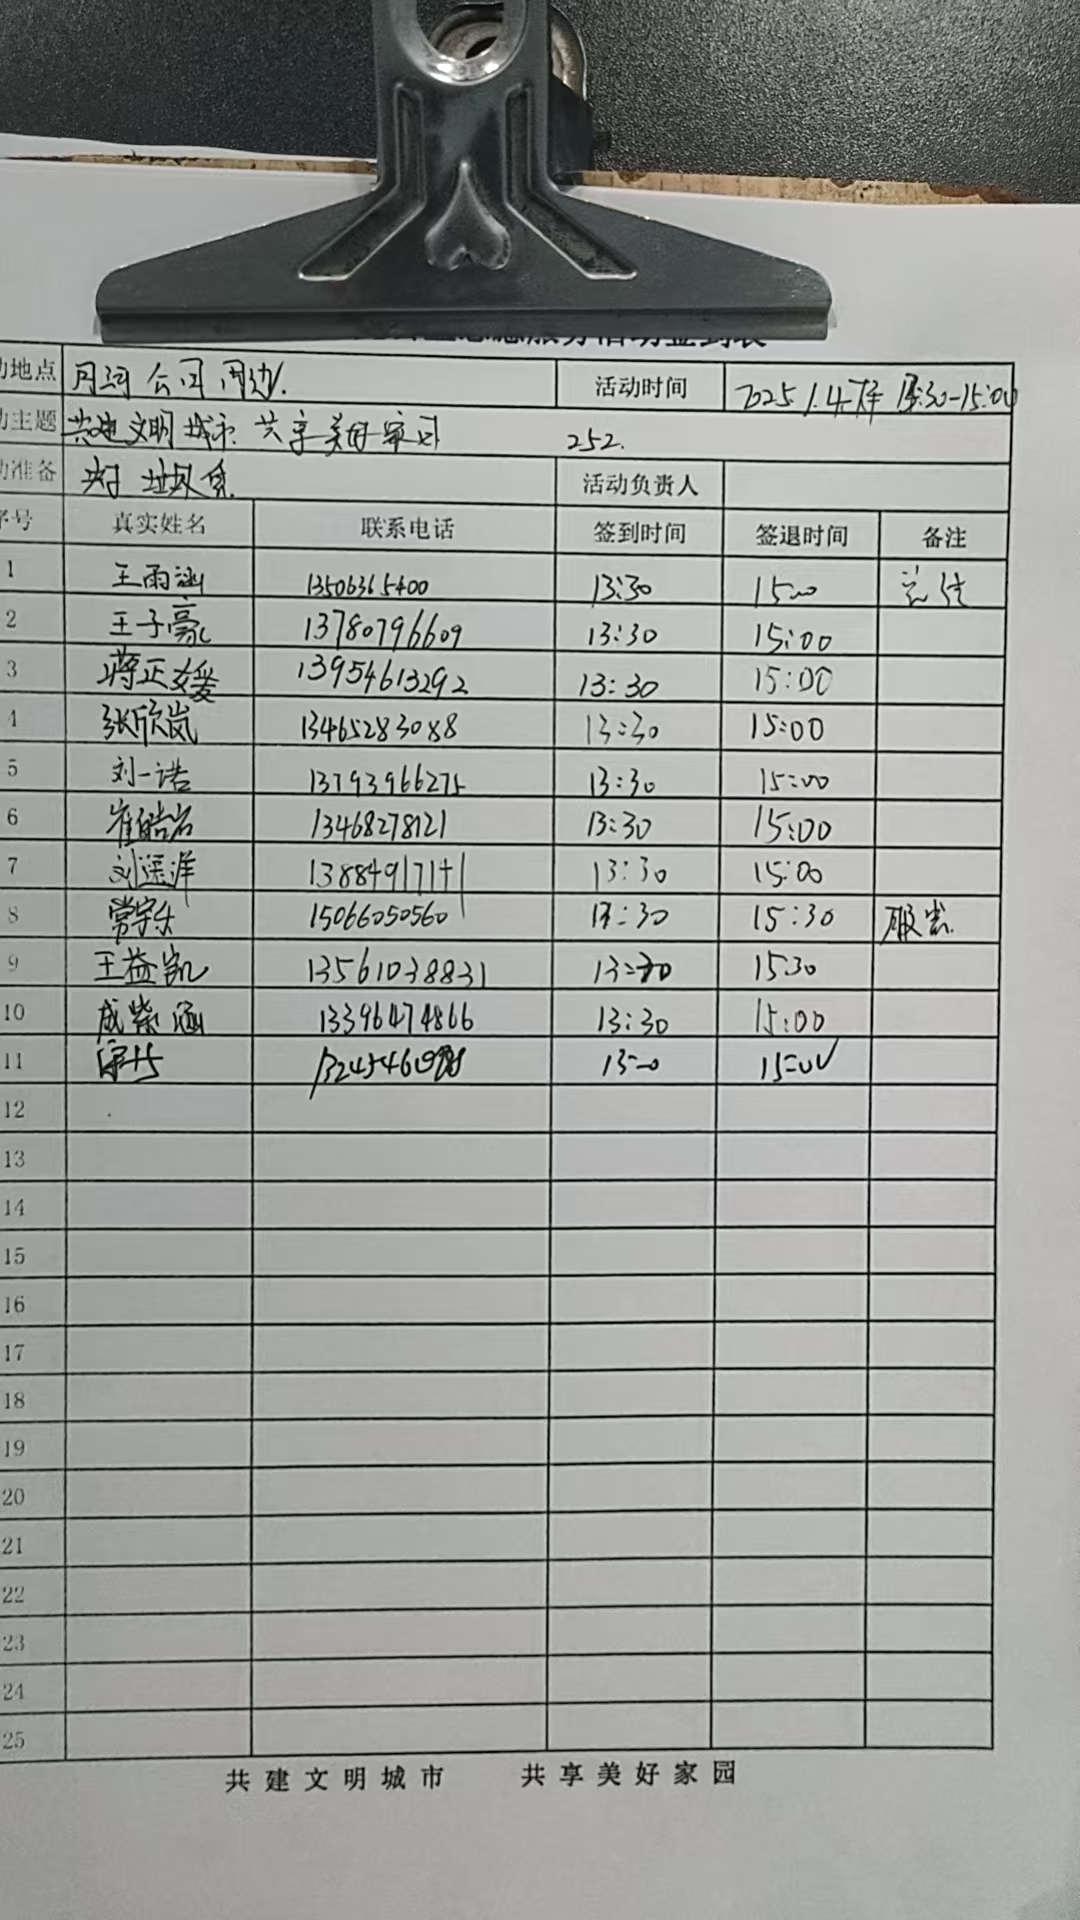 动地点 月河公园周边. 活动时间 2025.1.4.下午 13:30-15:00
动主题 共建文明城市 共享美好家园 252.
动准备 夹子 垃圾袋 活动负责人
序号 真实姓名 联系电话 签到时间 签退时间 备注
1 王雨涵 13506365400 13:30 15:00
2 王子豪 13780796609 13:30 15:00
3 蒋正媛 13954613292 13:30 15:00
4 张欣岚 13465283088 13:30 15:00
5 刘一诺 13793966275 13:30 15:00
6 崔皓岩 13468278121 13:30 15:00
7 刘遥洋 13884917141 13:30 15:00
8 常宇乐 15066050560 13:30 15:30
9 王益凯 13561038831 13:30 15:30
10 成紫涵 13396474866 13:30 15:00
11 15:00
12
13
14
15
16
17
18
19
20
21
22
23
24
25
共建文明城市 共享美好家园